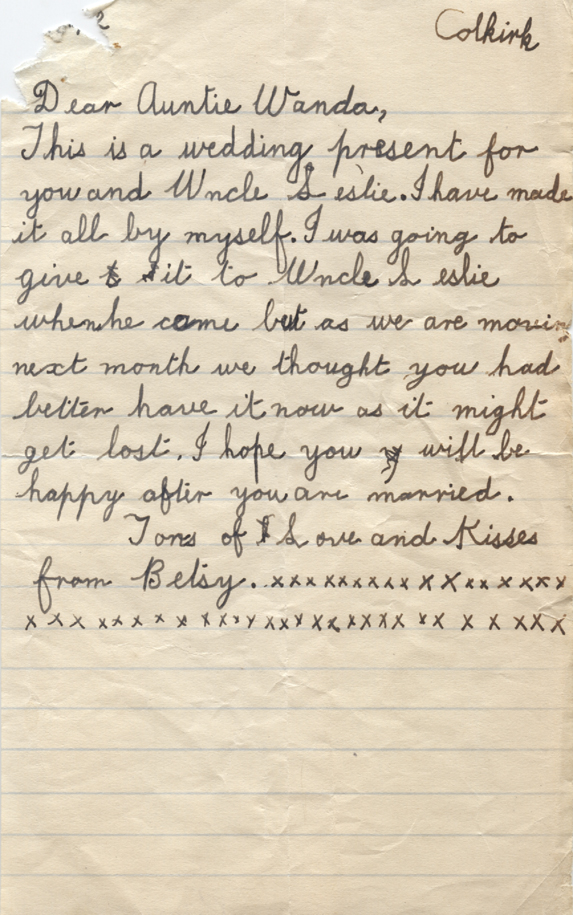 Colkirk
Dear Auntie Wanda,
This is a wedding present for
you and Uncle Leslie. I have made
it all by myself. I was going to
give it to Uncle Leslie
when he came but as we are movin
next month we thought you had
better have it now as it might
get lost. I hope you will be
happy after you are married.
Tons of Love and Kisses
from Betsy. xxx xxxxxxxx x X xx x xxx
x x x xxx x x x xxxx xxxxxxxxxxx xx x x xxx